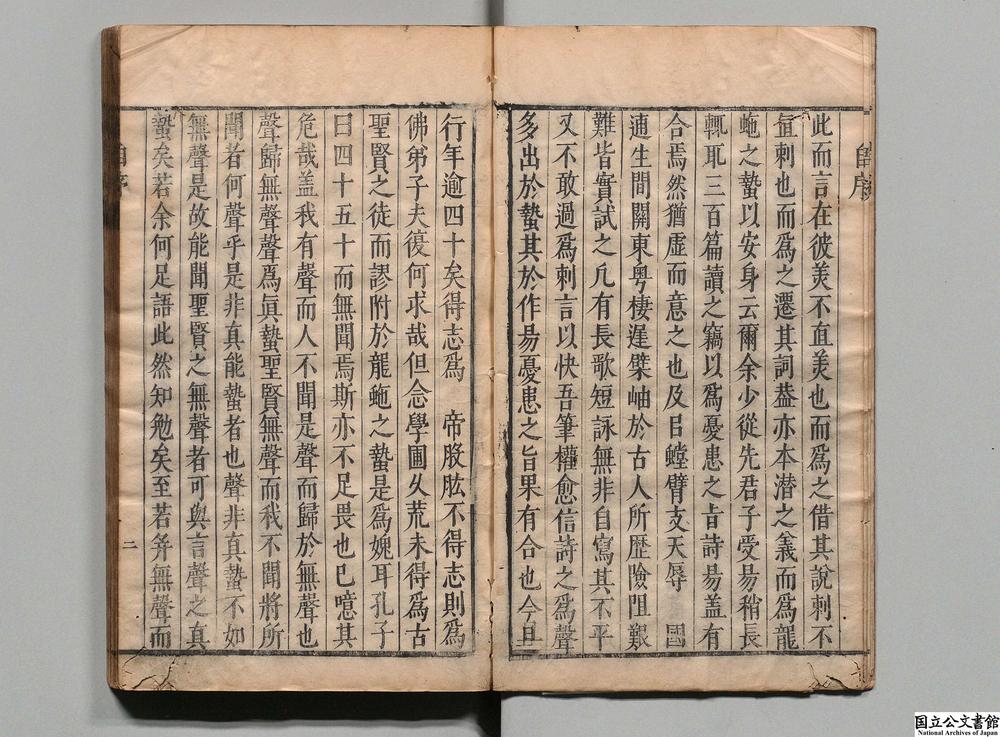 此而言在彼美不直美也而爲之借其說刺不
直刺也而爲之遷其詞葢亦本潛之義而爲龍
虵之蟄以安身云爾余少從先君子受易稍長
輒耴三百篇讀之竊以爲憂患之旨詩易葢有
合焉然猶虛而意之也及㠯螳臂支天辱 國
逋生間關東粤棲遲檗岫於古人所歴險阻艱
難皆實試之凢有長歌短詠無非自寫其不平
又不敢過爲刺言以快吾筆權愈信詩之爲聲
多出於蟄其於作易憂患之旨果有合也今且
行年逾四十矣得志爲 帝股肱不得志則爲
佛弟子夫復何求哉但念學圃乆荒未得爲古
聖賢之徒而謬附於龍虵之蟄是爲媿耳孔子
曰四十五十而無聞焉斯亦不足畏也已噫其
危哉盖我有聲而人不聞是聲而歸於無聲也
聲歸無聲聲爲眞蟄聖賢無聲而我不聞將所
聞者何聲乎是非真能蟄者也聲非真蟄不如
無聲是故能聞聖賢之無聲者可與言聲之真
蟄矣若余何足語此然知勉矣至若并無聲而
自序
二
国立公文書館
National Archives of Japan